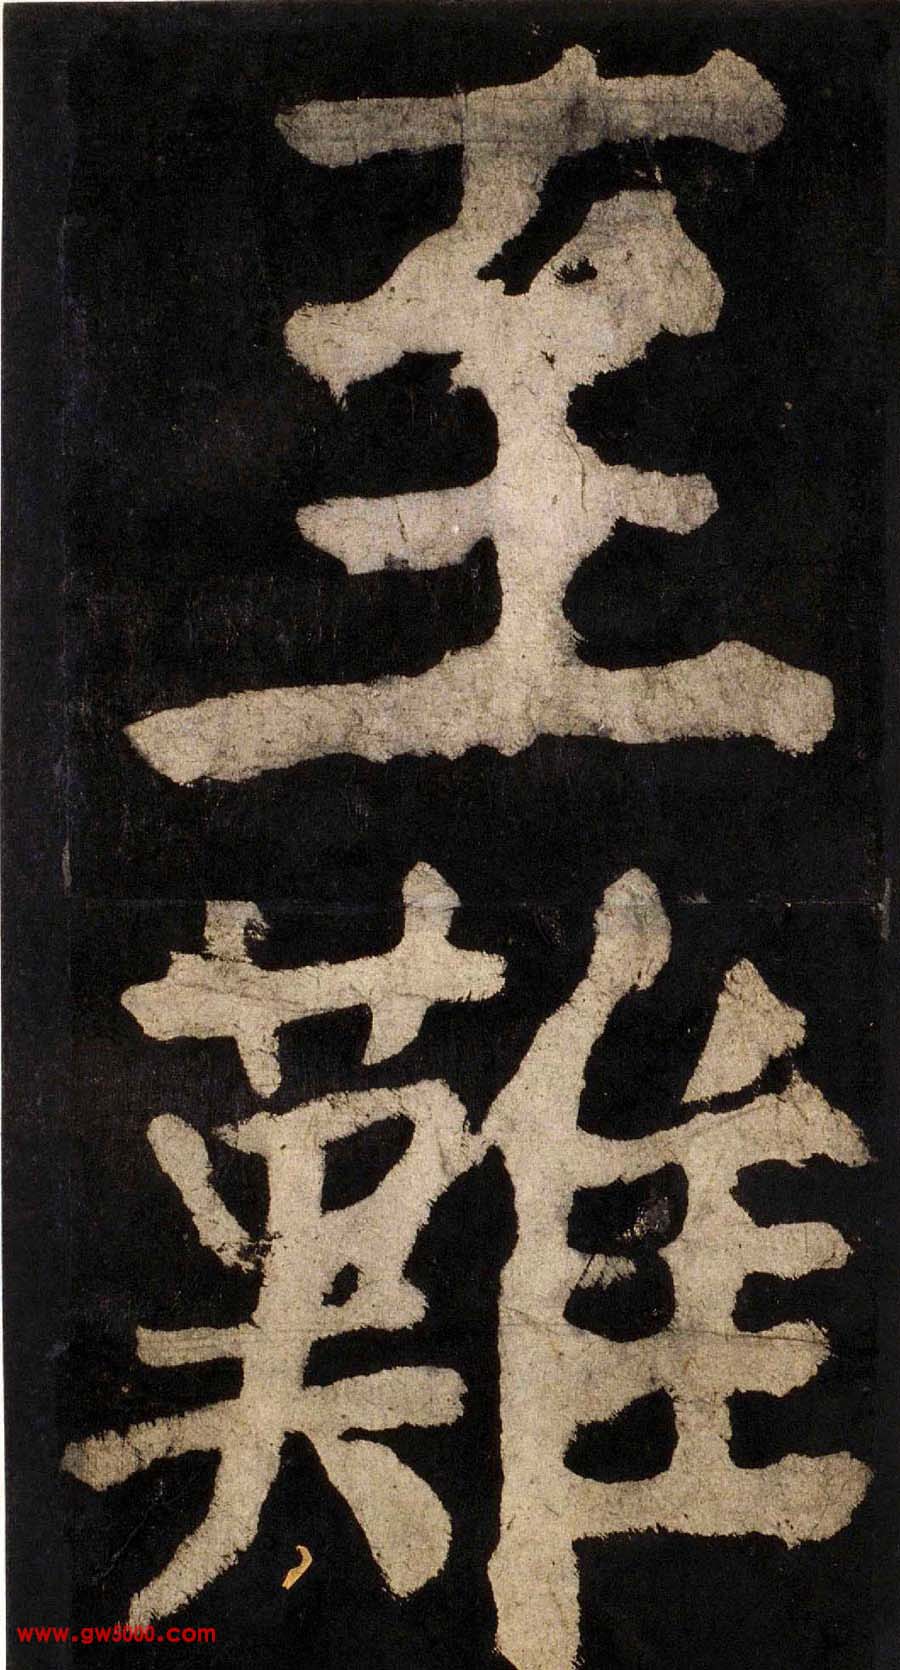 至難
www.gw5000.com